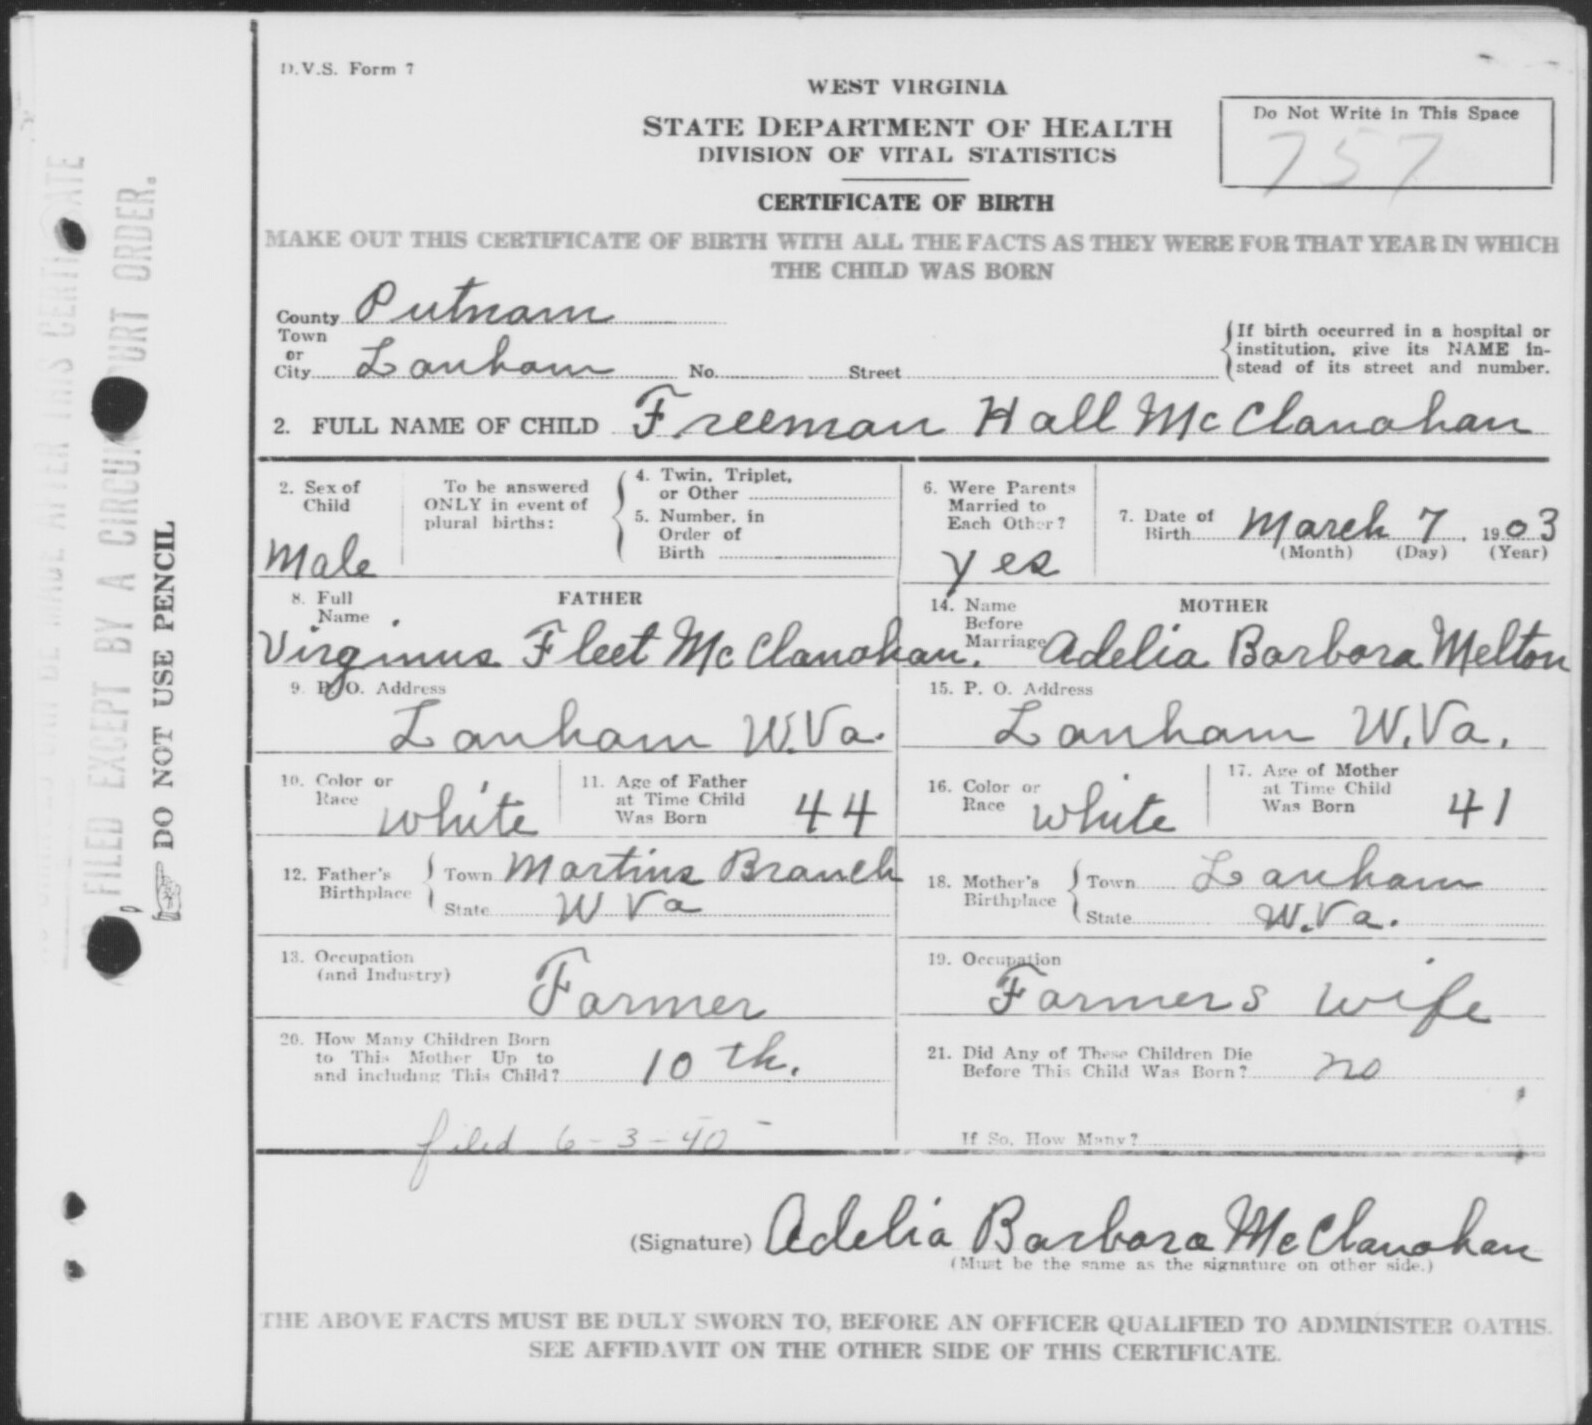 D.V.S. Form 7
WEST VIRGINIA
STATE DEPARTMENT OF HEALTH
DIVISION OF VITAL STATISTICS
CERTIFICATE OF BIRTH
Do Not Write in This Space
757
MAKE OUT THIS CERTIFICATE OF BIRTH WITH ALL THE FACTS AS THEY WERE FOR THAT YEAR IN WHICH
THE CHILD WAS BORN
County Putnam
Town or City Lanham No. Street
If birth occurred in a hospital or
institution, give its NAME in-
stead of its street and number.
2. FULL NAME OF CHILD Freeman Hall McClanahan
2. Sex of Child Male
To be answered
ONLY in event of
plural births:
4. Twin, Triplet,
or Other
5. Number, in
Order of
Birth
6. Were Parents
Married to
Each Other?
yes
7. Date of Birth March 7, 1903
(Month) (Day) (Year)
FATHER
8. Full Name
Virginus Fleet McClanahan.
9. P. O. Address
Lanham W.Va.
10. Color or Race white
11. Age of Father
at Time Child
Was Born 44
12. Father's Birthplace
Town Martins Branch
State W Va
13. Occupation
(and Industry)
Farmer
20. How Many Children Born
to This Mother Up to
and including This Child? 10th.
filed 6-3-40
MOTHER
14. Name
Before
Marriage Adelia Barbara Melton
15. P. O. Address
Lanham W.Va.
16. Color or Race white
17. Age of Mother
at Time Child
Was Born 41
18. Mother's Birthplace
Town Lanham
State W.Va.
19. Occupation
Farmers wife
21. Did Any of These Children Die
Before This Child Was Born? no
If So, How Many?
(Signature) Adelia Barbara McClanahan
(Must be the same as the signature on other side.)
THE ABOVE FACTS MUST BE DULY SWORN TO, BEFORE AN OFFICER QUALIFIED TO ADMINISTER OATHS.
SEE AFFIDAVIT ON THE OTHER SIDE OF THIS CERTIFICATE.
DO NOT USE PENCIL
FILED EXCEPT BY A CIRCUIT COURT ORDER.
MADE AFTER THIS CERTIFICATE